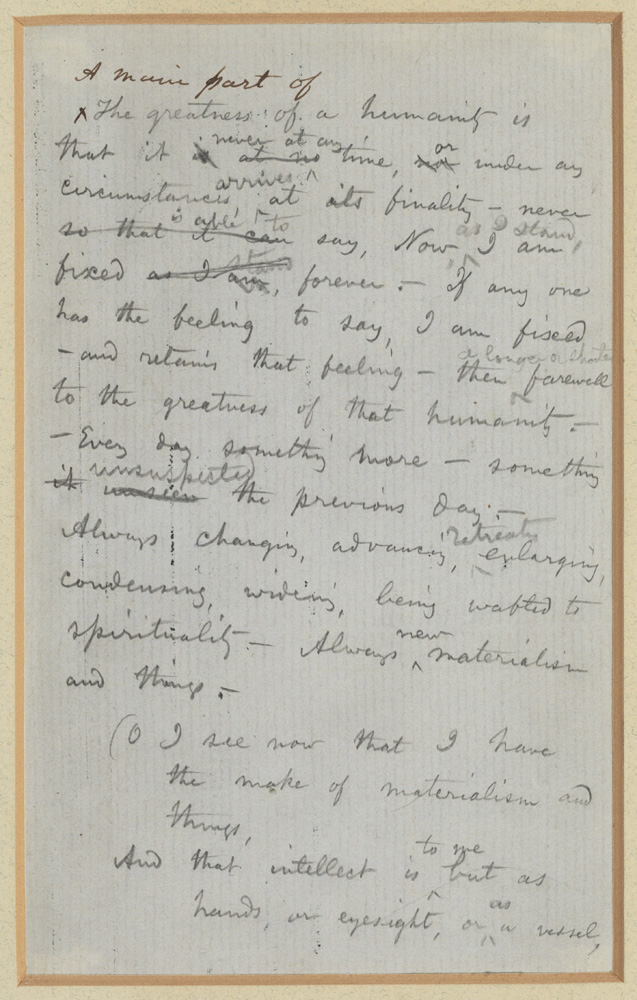 A main part of
x The greatness of a humanity is
never at any
that it is at no time, not or under any
arrives
circumstances, at its finality — never
is able to
so that it can say, Now, I am as I stand,
stand
fixed as I am, forever. — If any one
has the feeling to say, I am fixed
a longer or shorter
— and retains that feeling — then farewell
to the greatness of that humanity. —
— Every day something more — something
unsuspected
it unseen the previous day. —
retreats
Always changing, advancing, enlarging,
condensing, widening, being wafted to
new
spirituality — Always materialism
and things. —
(O I see now that I have
the make of materialism and
things,
to me
And that intellect is but as
as
hands, or eyesight, or a vessel,